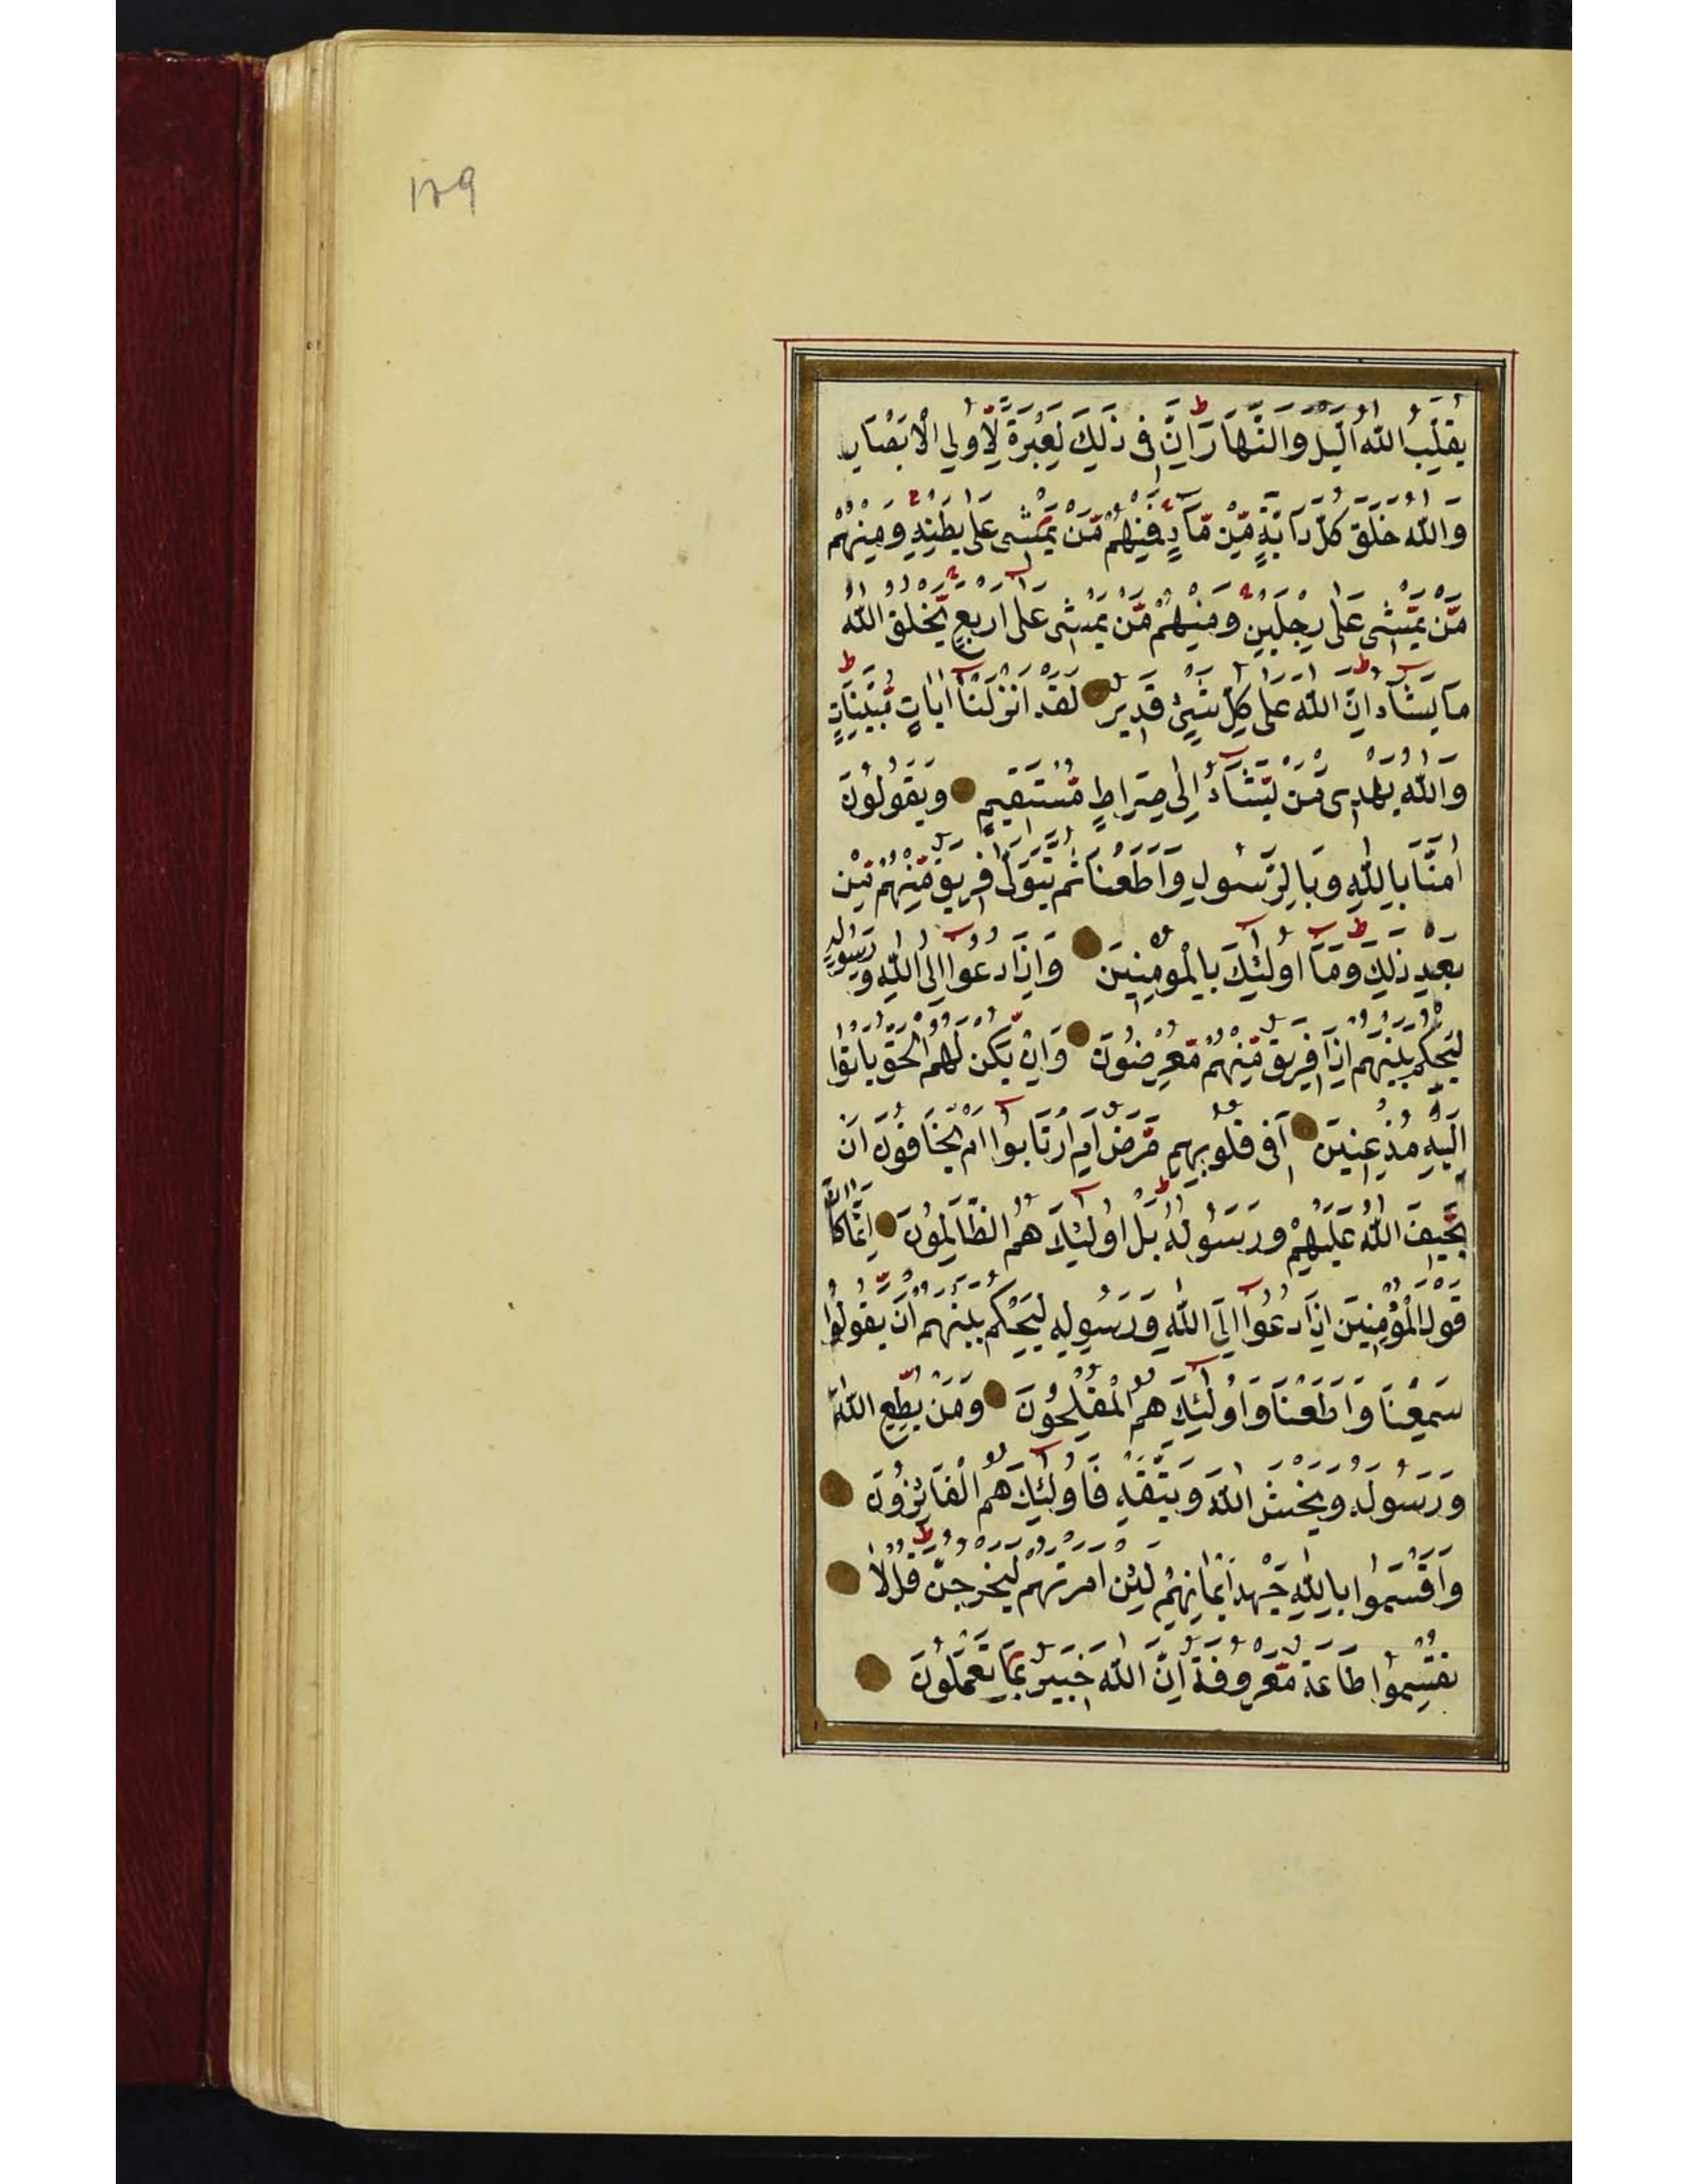 ١٢٩
يُقَلِّبُ اللّٰهُ الَّيْلَ وَالنَّهَارَ اِنَّ فِى ذٰلِكَ لَعِبْرَةً لِّاُولِى الْاَبْصَارِ
وَاللّٰهُ خَلَقَ كُلَّ دَآبَّةٍ مِّنْ مَّآءٍ فَمِنْهُمْ مَّنْ يَّمْشِى عَلٰى بَطْنِهٖ وَمِنْهُمْ
مَّنْ يَّمْشِى عَلٰى رِجْلَيْنِ وَمِنْهُمْ مَّنْ يَّمْشِى عَلٰٓى اَرْبَعٍ يَّخْلُقُ اللّٰهُ
مَا يَشَآءُ اِنَّ اللّٰهَ عَلٰى كُلِّ شَىْءٍ قَدِيْرٌ لَقَدْ اَنْزَلْنَآ اٰيَاتٍ مُّبَيِّنَاتٍ
وَاللّٰهُ يَهْدِىْ مَنْ يَّشَآءُ اِلٰى صِرَاطٍ مُّسْتَقِيْمٍ وَيَقُوْلُوْنَ
اٰمَنَّا بِاللّٰهِ وَبِالرَّسُوْلِ وَاَطَعْنَا ثُمَّ يَتَوَلّٰى فَرِيْقٌ مِّنْهُمْ مِّنْ
بَعْدِ ذٰلِكَ وَمَآ اُولٰٓئِكَ بِالْمُؤْمِنِيْنَ وَاِذَا دُعُوْٓا اِلَى اللّٰهِ وَرَسُوْلِهٖ
لِيَحْكُمَ بَيْنَهُمْ اِذَا فَرِيْقٌ مِّنْهُمْ مُّعْرِضُوْنَ وَاِنْ يَّكُنْ لَهُمُ الْحَقُّ يَاْتُوْا
اِلَيْهِ مُذْعِنِيْنَ اَفِى قُلُوْبِهِمْ مَّرَضٌ اَمِ ارْتَابُوْٓا اَمْ يَخَافُوْنَ اَنْ
يَّحِيْفَ اللّٰهُ عَلَيْهِمْ وَرَسُوْلُهٗ بَلْ اُولٰٓئِكَ هُمُ الظَّالِمُوْنَ اِنَّمَا كَانَ
قَوْلَ الْمُؤْمِنِيْنَ اِذَا دُعُوْٓا اِلَى اللّٰهِ وَرَسُوْلِهٖ لِيَحْكُمَ بَيْنَهُمْ اَنْ يَّقُوْلُوْا
سَمِعْنَا وَاَطَعْنَا وَاُولٰٓئِكَ هُمُ الْمُفْلِحُوْنَ وَمَنْ يُّطِعِ اللّٰهَ
وَرَسُوْلَهٗ وَيَخْشَ اللّٰهَ وَيَتَّقْهِ فَاُولٰٓئِكَ هُمُ الْفَآئِزُوْنَ
وَاَقْسَمُوْا بِاللّٰهِ جَهْدَ اَيْمَانِهِمْ لَئِنْ اَمَرْتَهُمْ لَيَخْرُجُنَّ قُلْ لَا
تُقْسِمُوْا طَاعَةٌ مَّعْرُوْفَةٌ اِنَّ اللّٰهَ خَبِيْرٌ بِمَا تَعْمَلُوْنَ